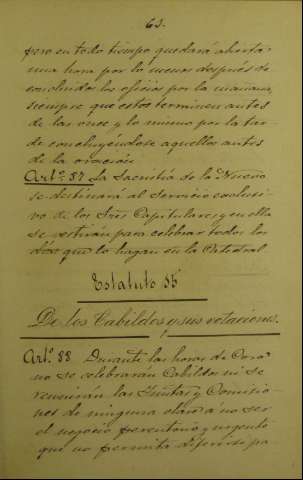 63.
pero en todo tiempo quedará abierta
una hora por lo menos después de
concluidos los oficios por la mañana,
siempre que estos terminen antes
de las once y lo mismo por la tar-
de concluyéndose aquellos antes
de la oración
Artº. 87 La Sacristía de lo Nuevo
se destinará al Servicio esclusi-
vo de los Sres Capitulares y en ella
se vestirán para celebrar todos los
días que lo hagan en la Catedral
Estatuto 5º
De los Cabildos y sus votaciones.
Artº. 88 Durante las horas de Coro
no se celebrarán Cabildos ni se
reunirán las Juntas y Comisio
nes de ninguna clase á no ser
el negocio perentorio y urgente
que no permita diferirse pa